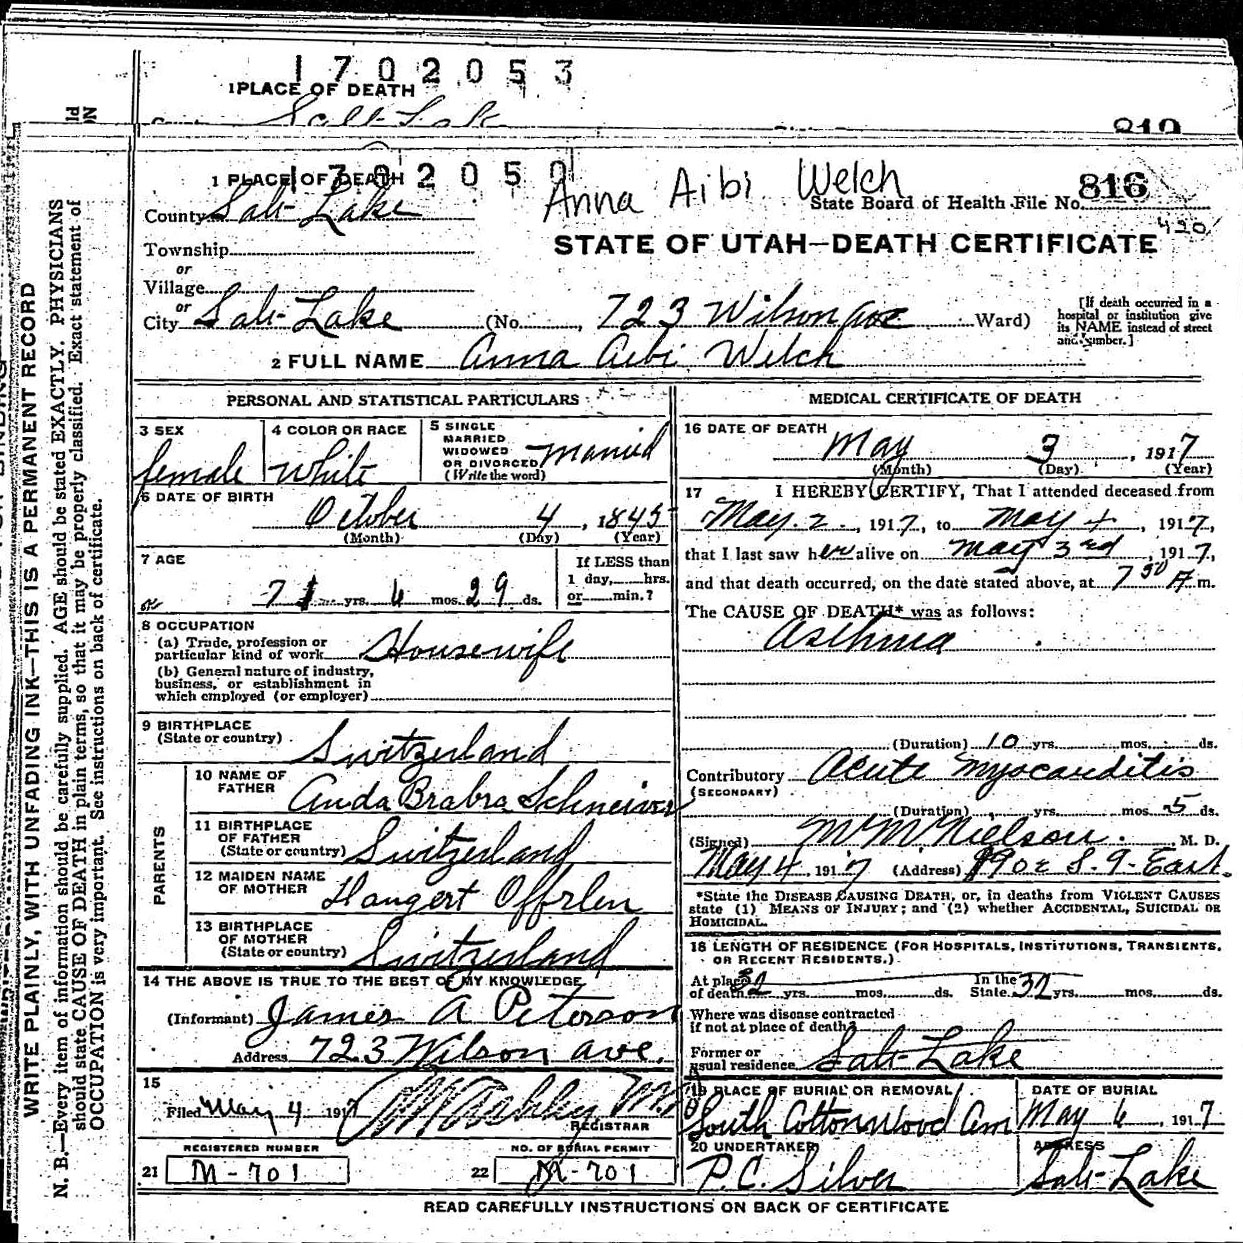 1702053
1 PLACE OF DEATH
Salt Lake
819
ld
ON
1702050
1 PLACE OF DEATH
Anna Aibi Welch
816
State Board of Health File No.
County Salt Lake
STATE OF UTAH—DEATH CERTIFICATE
Township
or
Village
or
City Salt Lake (No. 723 Wilson Ave Ward)
[If death occurred in a
hospital or institution give
its NAME instead of street
and number.]
2 FULL NAME Anna Aibi Welch
PERSONAL AND STATISTICAL PARTICULARS
3 SEX
female
4 COLOR OR RACE
White
5 SINGLE
MARRIED
WIDOWED
OR DIVORCED
(Write the word)
Married
6 DATE OF BIRTH
October 4, 1845
(Month) (Day) (Year)
7 AGE
71 yrs. 6 mos. 29 ds.
If LESS than
1 day, hrs.
or min.?
8 OCCUPATION
(a) Trade, profession or
particular kind of work Housewife
(b) General nature of industry,
business, or establishment in
which employed (or employer)
9 BIRTHPLACE
(State or country) Switzerland
PARENTS
10 NAME OF
FATHER
11 BIRTHPLACE
OF FATHER
(State or country) Switzerland
12 MAIDEN NAME
OF MOTHER
13 BIRTHPLACE
OF MOTHER
(State or country) Switzerland
14 THE ABOVE IS TRUE TO THE BEST OF MY KNOWLEDGE
(Informant) James A Peterson
Address 723 Wilson ave.
15
Filed May 4 1917
REGISTRAR
REGISTERED NUMBER
21 M-701
NO. OF BURIAL PERMIT
22 M-701
MEDICAL CERTIFICATE OF DEATH
16 DATE OF DEATH
May 3, 1917
(Month) (Day) (Year)
17 I HEREBY CERTIFY, That I attended deceased from
May 2, 1917, to May 4, 1917,
that I last saw her alive on May 3rd, 1917,
and that death occurred, on the date stated above, at 7 30 A m.
The CAUSE OF DEATH* was as follows:
Asthma
(Duration) 10 yrs. mos. ds.
Contributory Acute Myocarditis
(SECONDARY)
(Duration) yrs. mos. 5 ds.
(Signed) M. D.
May 4 1917 (Address)
*State the DISEASE CAUSING DEATH, or, in deaths from VIOLENT CAUSES
state (1) MEANS OF INJURY; and (2) whether ACCIDENTAL, SUICIDAL OR
HOMICIDAL.
18 LENGTH OF RESIDENCE (FOR HOSPITALS, INSTITUTIONS, TRANSIENTS,
OR RECENT RESIDENTS.)
At place
of death 32 yrs. mos. ds. In the
State 32 yrs. mos. ds.
Where was disease contracted
if not at place of death?
Former or
usual residence Salt Lake
19 PLACE OF BURIAL OR REMOVAL
South Cottonwood
DATE OF BURIAL
May 6, 1917
20 UNDERTAKER
P.C. Silver
ADDRESS
Salt Lake
READ CAREFULLY INSTRUCTIONS ON BACK OF CERTIFICATE
WRITE PLAINLY, WITH UNFADING INK—THIS IS A PERMANENT RECORD
N. B.—Every item of information should be carefully supplied. AGE should be stated EXACTLY. PHYSICIANS
should state CAUSE OF DEATH in plain terms, so that it may be properly classified. Exact statement of
OCCUPATION is very important. See instructions on back of certificate.